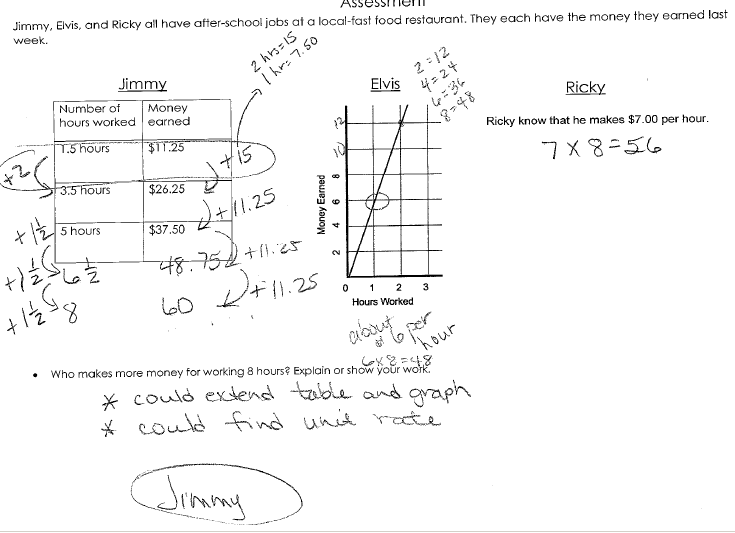 Assessment
Jimmy, Elvis, and Ricky all have after-school jobs at a local-fast food restaurant. They each have the money they earned last
week.
2 hrs=15
1 hr= 7.50
2=12
4=24
6=36
8=48
Jimmy
Elvis
Ricky
Number of hours worked
Money earned
1.5 hours
$11.25
3.5 hours
$26.25
5 hours
$37.50
+2
+15
+1½
+11.25
+1½
6½
48.75
+11.25
+1½
8
60
+11.25
Money Earned
12
10
8
6
4
2
0 1 2 3
Hours Worked
about 6 per hour
6x8=48
Ricky know that he makes $7.00 per hour.
7 x 8=56
• Who makes more money for working 8 hours? Explain or show your work.
* could extend table and graph
* could find unit rate
Jimmy